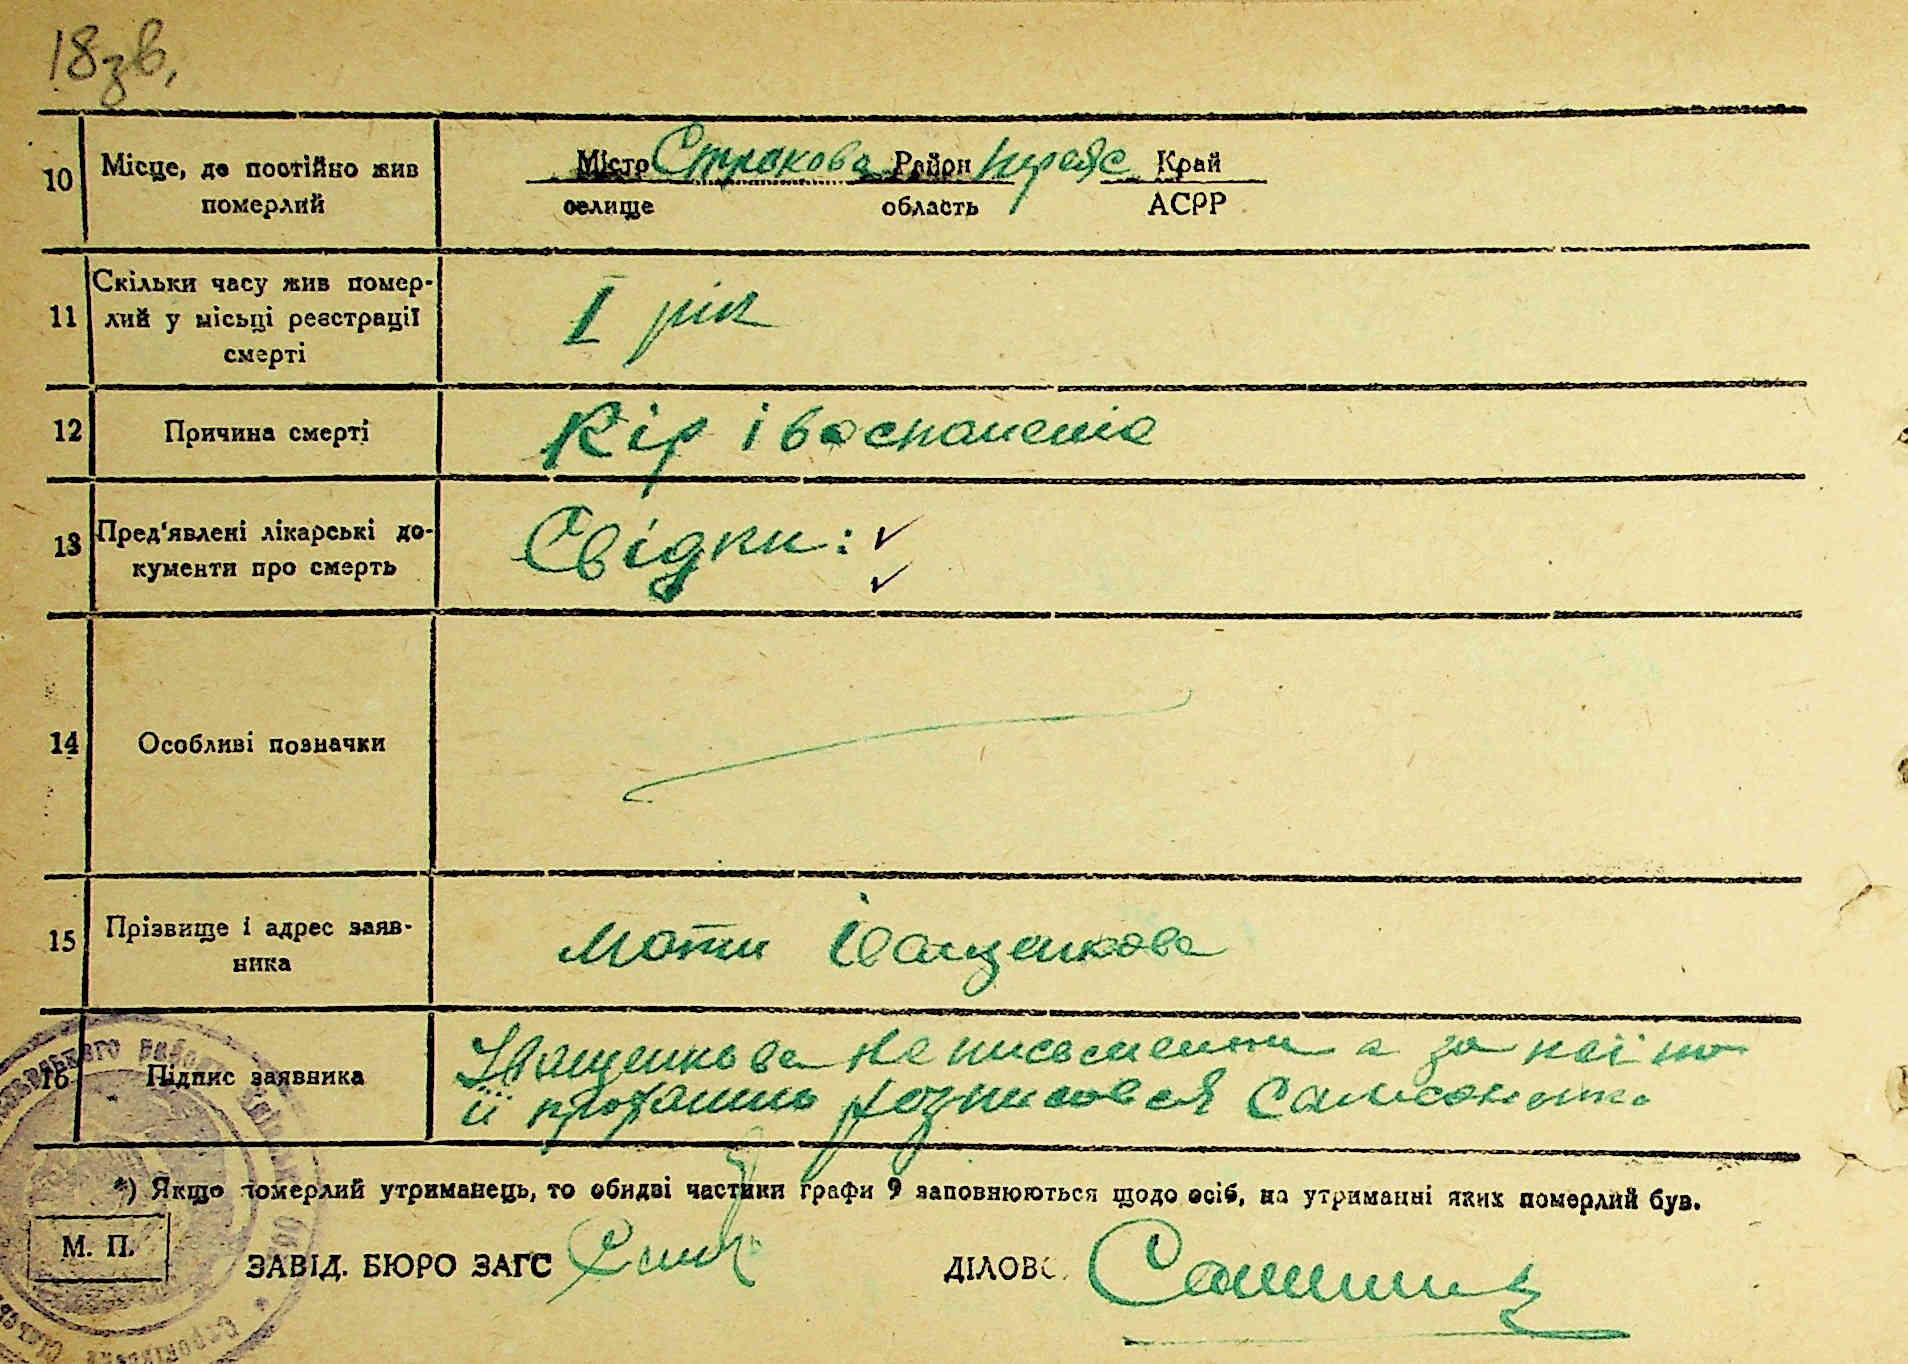 18зв.
10 Місце, де постійно жив померлий
Місто Строкова Район Край
селище область АСРР
11 Скільки часу жив помер-
лий у місьці реєстрації
смерті
I рік
12 Причина смерті
Кір і воспаленіе
13 Пред'явлені лікарські до-
кументи про смерть
Свідки: ✓
✓
14 Особливі позначки
15 Прізвище і адрес заяв-
ника
Мати Іващенкова
16 Підпис заявника
Іващенкова не письменна а за неї по
її проханню розписовся
*) Якщо померлий утриманець, то обидві частини графи 9 заповнюються щодо осіб, на утриманні яких померлий був.
М. П.
ЗАВІД. БЮРО ЗАГС
ДІЛОВС